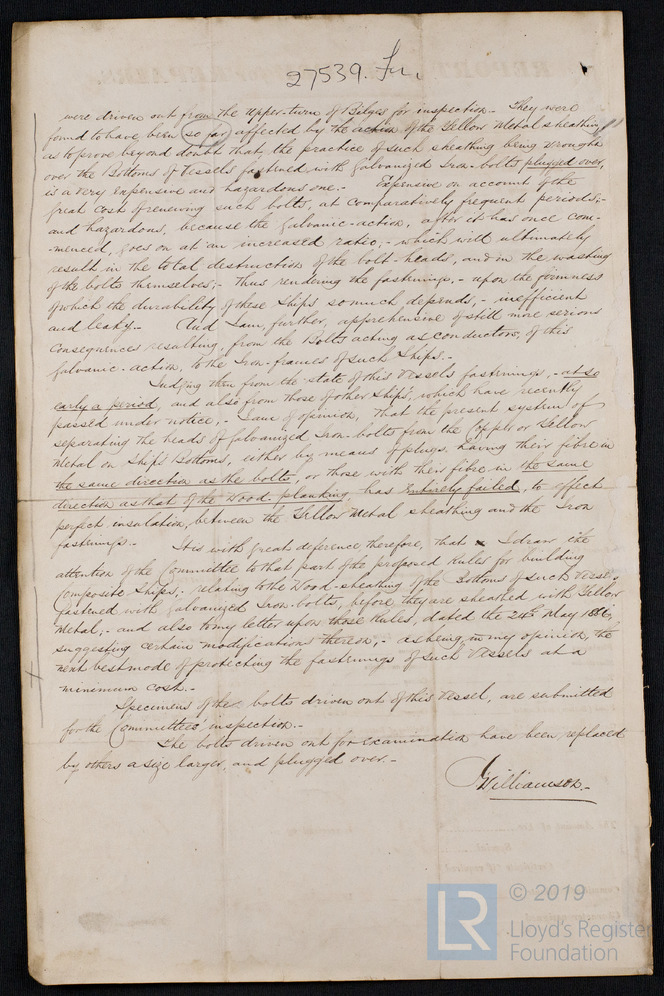 27539 Iru.
were driven out from the upper-turn of Bilges for inspection - They were
found to have been (so far) affected by the action of the Yellow Metal sheathing
as to prove beyond doubt that, the practice of such sheathing being brought
over the Bottoms of Vessels fastened with Galvanized Iron-bolts plugged over,
is a very expensive and hazardous one. - Expensive on account of the
great cost of renewing such bolts, at comparatively frequent periods; -
and hazardous, because the Galvanic-action, after it has once com-
-menced, goes on at an increased ratio; - which will ultimately
result in the total destruction of the bolt-heads, and in the wasting
of the bolts themselves; - thus rendering the fastenings, - upon the firmness
of which the durability of these Ships so much depends, - inefficient
and leaky. - And I am, further, apprehensive of still more serious
consequences resulting, from the Bolts acting as conductors, of this
galvanic-action, to the Iron-frames of such Ships. -
Judging then from the state of this Vessels fastenings, - at so
early a period, and also from those of other Ships, which have recently
passed under notice; - I am of opinion, that the present system of
separating the heads of Galvanized Iron-bolts from the Copper or Yellow
Metal on Ships Bottoms, either by means of plugs, having their fibre in
the same direction as the bolts, or those with their fibre in the same
direction as that of the Wood-planking, has Entirely failed, to effect
perfect insulation, between the Yellow Metal sheathing and the Iron
fastenings. - It is with great deference, therefore, that I draw the
attention of the Committee to that part of the proposed Rules for building
Composite Ships, - relating to the Wood-sheathing of the Bottoms of such Vessels
fastened with Galvanized Iron-bolts, before they are sheathed with Yellow
Metal, - and also to my letter upon those Rules, dated the 24th May 1866,
suggesting certain modifications thereon, - as being, in my opinion, the
next best mode of protecting the fastenings of such Vessels at a
minimum cost. -
Specimens of the bolts driven out of this Vessel, are submitted
for the Committees' inspection. -
The bolts driven out for examination have been replaced
by others a size larger, and plugged over. -
J Williamson. -
LR
© 2019
Lloyd's Register
Foundation